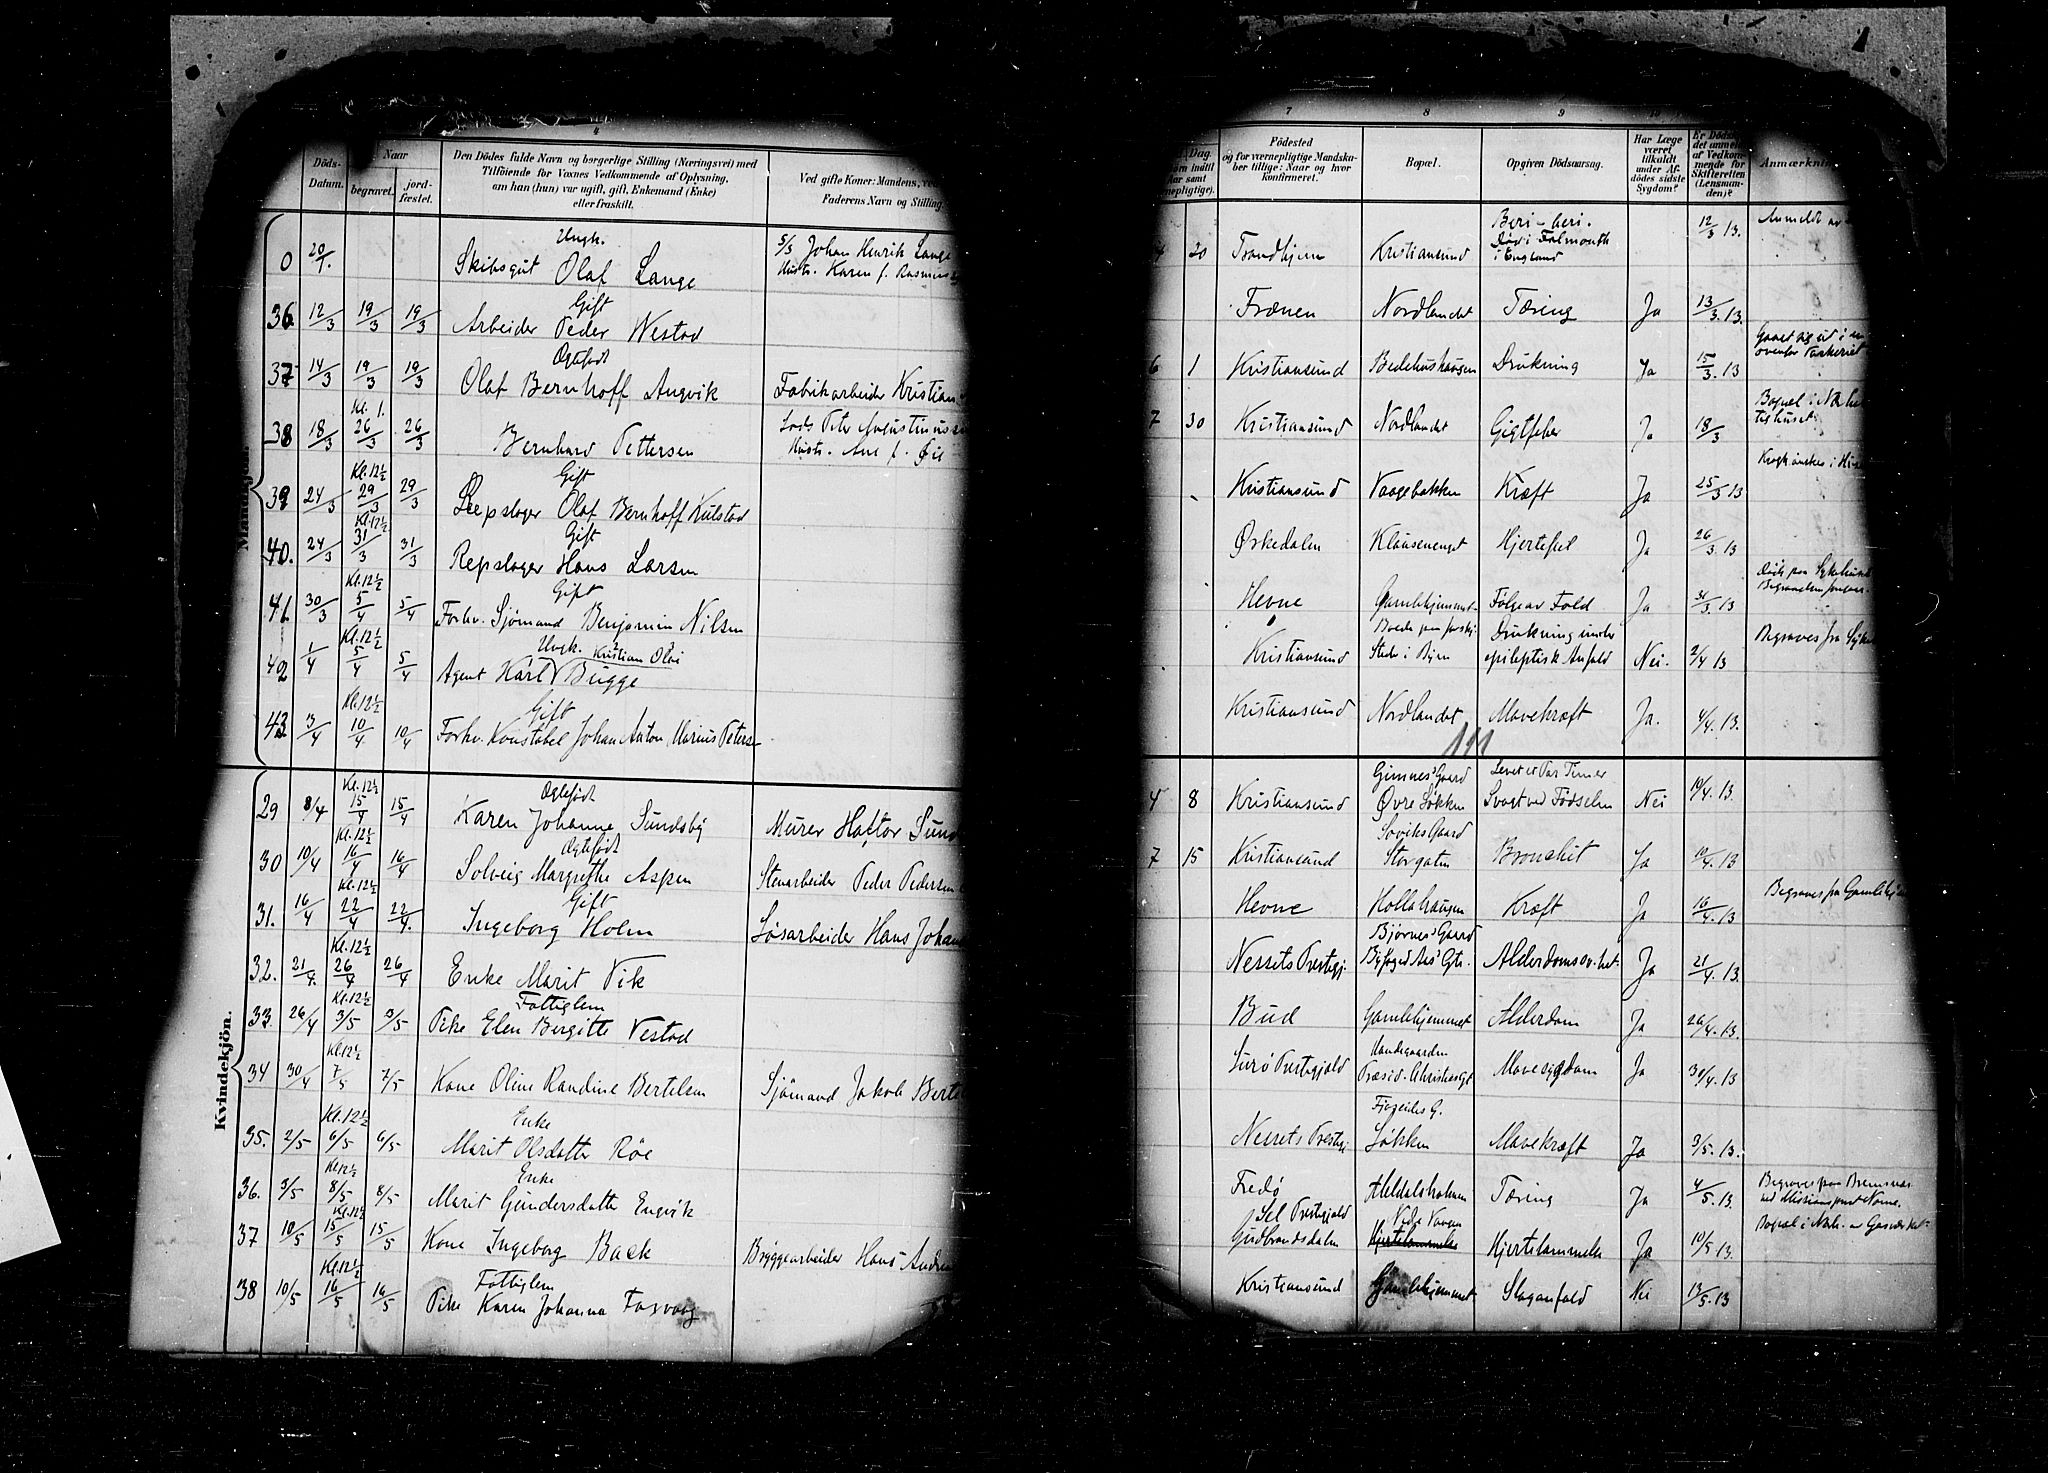 4
Döds-
Datum.
Naar
begravet.
jord-
fæstet.
Den Dödes fulde Navn og borgerlige Stilling (Næringsvei) med
Tilföiende for Voxnes Vedkommende af Oplysning,
om han (hun) var ugift, gift, Enkemand (Enke)
eller fraskilt.
Ved gifte Koner: Mandens,
Faderens Navn og Stilling
Ungk.
0 20/1. Skibsgut Olaf Lange S/S Johan Henrik Lange
Hustr. Karen f. Rasmus
Gift
36 12/3 19/3 19/3 Arbeider Peder Westad
Ægtefødt
37 14/3 19/3 19/3 Olaf Bernhoff Angvik Fabrikarbeider Kristian
Kl. 1.
38 18/3 26/3 26/3 Bernhard Pettersen Lods Peter Augustinussen
Hustr. Ane f.
Kl. 12½ Gift
39 24/3 29/3 29/3 Repslager Olaf Bernhoff Kulstad
Kl. 12½ Gift
40. 24/3 31/3 31/3 Repslager Hans Larsen
Kl. 12½ Gift
41. 30/3 5/4 5/4 Forhv. Sjømand Benjamin Nilsen
Kl. 12½ Ungk. Kristian Olai
42 1/4 5/4 5/4 Agent Karl Bugge
Kl. 12½ Gift
43. 3/4 10/4 10/4 Forhv. Konstabel Johan Anton Marius Peters
Kvindekjön.
Kl. 12½ Ægtefødt
29 8/4 15/4 15/4 Karen Johanne Sundsby Murer Haftor Sund
Kl. 12½ Ægtefødt
30 10/4 16/4 16/4 Solveig Margrethe Aspen Stenarbeider Peder Pedersen
Kl. 12½ Gift
31. 16/4 22/4 22/4. Ingeborg Holm Løsarbeider Hans Johan
Kl. 12½
32. 21/4. 26/4 26/4 Enke Marit Vik
Kl. 12½ Fattiglem
33. 26/4 3/5 3/5 Pike Elen Bergitte Vestad
Kl. 12½
34 30/4 7/5 7/5 Kone Oline Randine Bertelsen Sjömand Jakob Berte
Kl. 12½ Enke
35. 2/5 6/5 6/5 Marit Olsdatter Röe
Kl. 12½ Enke
36. 3/5 8/5 8/5 Marit Gundersdatter Engvik
Kl. 12½
37 10/5 15/5 15/5 Kone Ingeborg Back Bryggearbeider Hans Andre
Kl. 12½ Fattiglem
38 10/5 16/5 16/5 Pike Karen Johanna Fosvaag
7
8
9
10
Dag.
Födested
og for værnepligtige Mandska-
ber tillige: Naar og hvor
konfirmeret.
Bopæl.
Opgiven Dödsaarsag.
Har Læge
været
tilkaldt
under Af-
dödes sidste
Sygdom?
Er Döds
det anmel
af Vedkom-
mende for
Skifteretten
(Lensman-
den)?
Anmærkning
Beri-beri.
4 20 Trondhjem Kristiansund Död i Falmouth 12/3 13. Anmeldt av
i England
Frænen Nordlandet Tæring Ja 13/3. 13.
6 1 Kristiansund Bedehushaugen Drukning Ja 15/3. 13
7 30 Kristiansund Nordlandet Gigtfeber Ja 18/3
Kristiansund Vaagebakken Kræft Ja 25/3 13
Ørkedalen Klausenenget Hjertefeil Ja 26/3 13
Hevne Gamlehjemmet Følge av Fald Ja 31/3 13
Boede paa forskj. Drukning under
Kristiansund Steder i Byen epileptisk Anfald Nei. 2/4 13 Begraves fra Syke
Kristiansund Nordlandet Mavekræft Ja. 4/4. 13.
111
Gimnes' Gaard Levet et Par Timer
4 8 Kristiansund Øvre Løkken Svagt ved Fødselen Nei 10/4. 13.
Soviks Gaard
7 15 Kristiansund Storgaten Bronchit Ja 10/4. 13
Hevne Hollahaugen Kræft Ja 16/4. 13 Begraves fra Gamlehj
Bjørnes' Gaard
Nessets Prestegj. Byfoged Aas' Gt. Alderdomssv.het. Ja 21/4. 13.
Bud Gamlehjemmet Alderdom Ja 26/4. 13.
Surö Prestegjeld Præsid. Christies Gt Mavesygdom Ja 30/4. 13
Nessets Prestegj Løkken Mavekræft Ja 3/5. 13.
Fredö Meldalsholmen Tæring Ja 4/5. 13. Begraves paa Bremsnes
Sel Prestegjeld Nedr Vaagen
Gudbrandsdalen Hjertelammelse Hjertelammelse Ja 10/5 13.
Kristiansund Gamlehjemmet Slaganfald Nei 13/5. 13